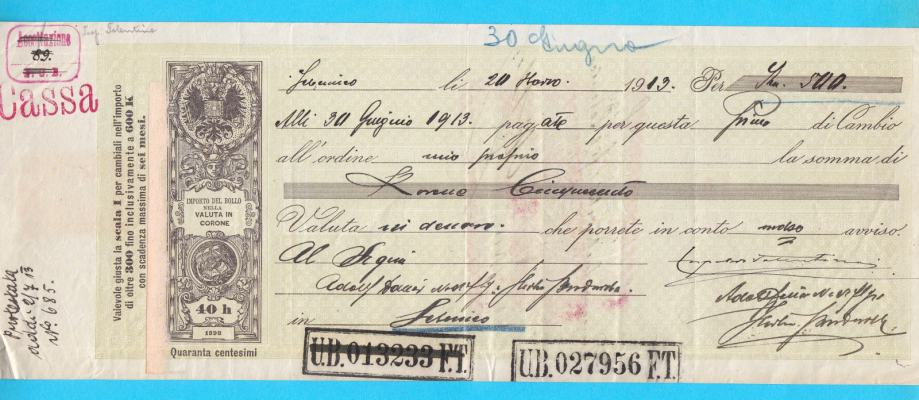 89.
Cassa
30 Giugno
Sebenico li 20 Marzo. 1913. Per Kr. 500
Alli 30 Giugno 1913. pagate per questa Prima di Cambio
all'ordine mio proprio la somma di
Corone Cinquecento
Valuta in denaro. che porrete in conto senza avviso.
Al Signor
Adolf
in Sebenico
Valevole giusta la scala I per cambiali nell'importo
di oltre 300 fino inclusivamente a 600 K
con scadenza massima di sei mesi.
IMPORTO DEL BOLLO
NELLA
VALUTA IN
CORONE
40 h
1898
Quaranta centesimi
Protestata
addi 2/7 13
No. 685.
U.B. 013233 F.T.
U.B. 027956 F.T.